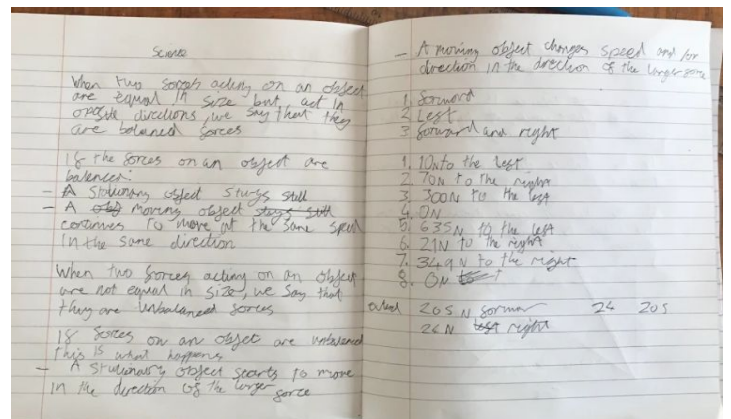 Science
When two forces acting on an object
are equal in size but act in
oposite directions, we say that they
are balanced forces
If the forces on an object are
balanced:
- A Stationary object stays still
- A obj moving object stays still
continues to move at the same speed
in the same direction
When two forces acting on an object
are not equal in size, we say that
they are unbalanced forces
If forces on an object are unbalanced
this is what happens
- A stationary object starts to move
in the direction of the larger force
- A moving object changes speed and/or
direction in the direction of the larger force
1. forward
2 Left
3 forward and right
1. 10N to the left
2 70N to the right
3. 300N to the left
4. 0N
5. 635N to the left
6. 21N to the right
7. 349N to the right
8. 0N
205N forwar 24 205
24N left right